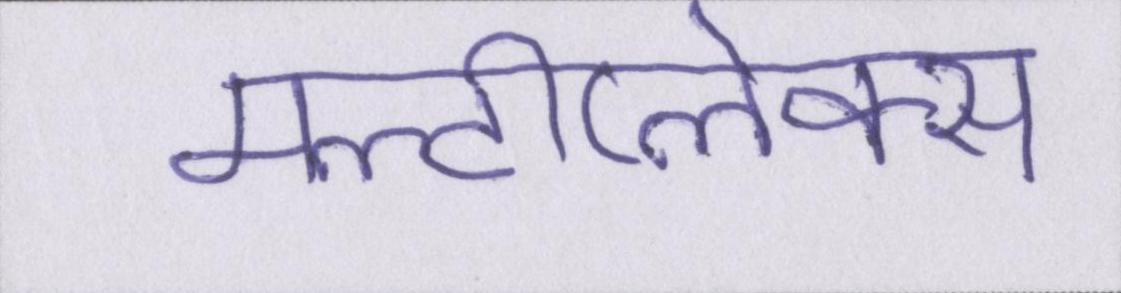 मल्टीप्लेक्स